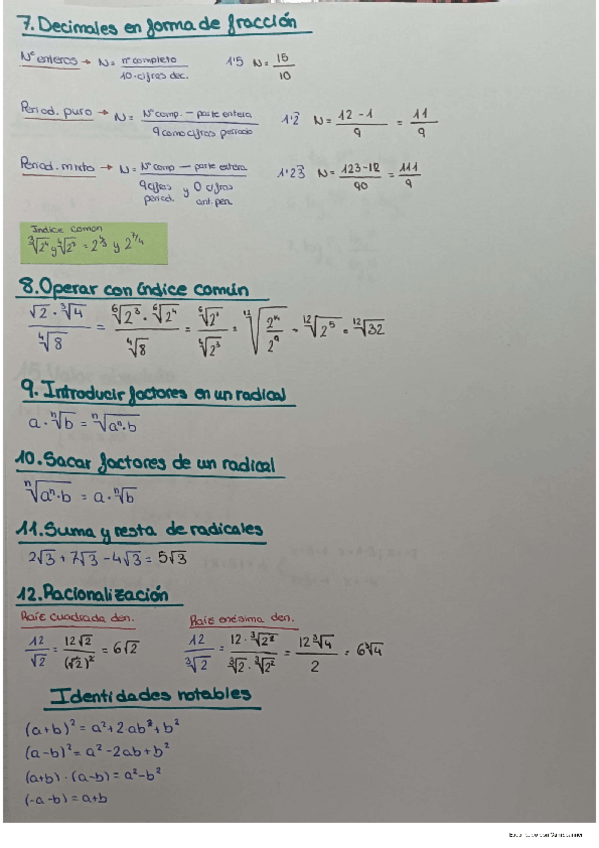 7. Decimales en forma de fracción
Nº enteros → N = nº completo / 10·cifras dec. 1'5 N = 15/10
Period. puro → N = Nº comp. - parte entera / 9 como cifras periodo 1'2̂ N = 12-1 / 9 = 11/9
Period. mixto → N = Nº comp - parte entera / 9 cifras period. y 0 cifras ant. per. 1'23̂ N = 123-12 / 90 = 111/9
Índice común
∛2⁴ y
8. Operar con índice común
√2 · ∛4 / ∜8 = ⁶√2³ · ⁶√2⁴ / ∜8 = ⁶√2⁷ / ∜2³ = ¹²√(2¹⁴/2⁹) = ¹²√2⁵ = ¹²√32
9. Introducir factores en un radical
a · ⁿ√b = ⁿ√(aⁿ·b)
10. Sacar factores de un radical
ⁿ√(aⁿ·b) = a · ⁿ√b
11. Suma y resta de radicales
2√3 + 7√3 - 4√3 = 5√3
12. Racionalización
Raíz cuadrada den. Raíz enésima den.
12/√2 = 12√2/(√2)² = 6√2 12/∛2 = 12·∛2² / ∛2·∛2² = 12∛4 / 2 = 6∛4
Identidades notables
(a+b)² = a² + 2·ab² + b²
(a-b)² = a² - 2ab + b²
(a+b) · (a-b) = a² - b²
(-a-b) = a+b